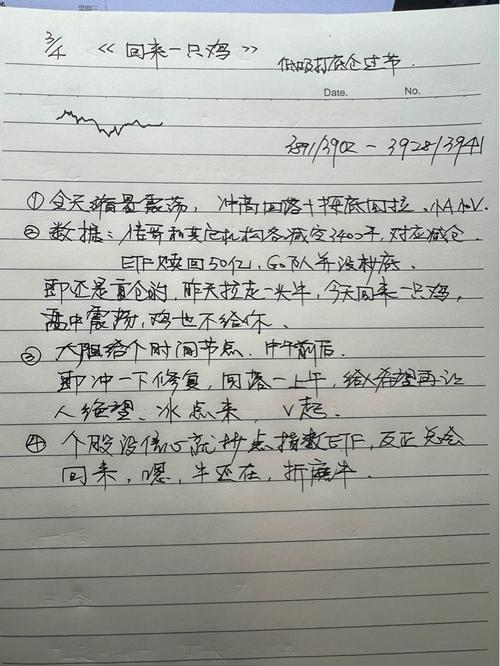 3/4 《回来一只鸡》
低吸打底仓过节.
Date. No.
3891/3902 - 3928/3941
① 全天缩量震荡, 冲高回落+探底回拉. 小A小V.
② 数据: 信号和其它机构各减空3400手, 对应减仓
ETF赎回50亿, G队并没抄底.
即还是盲仓的, 昨天拉走一头牛, 今天回来一只鸡,
盘中震荡, 鸡也不给你.
③ 大胆给个时间节点. 中午前后.
即冲一下修复, 回落一上午, 给人希望再让
人绝望、冰点来 V起.
④ 个股没信心就抄点指数ETF, 反正总会
回来, 嗯, 牛还在, 折磨牛.